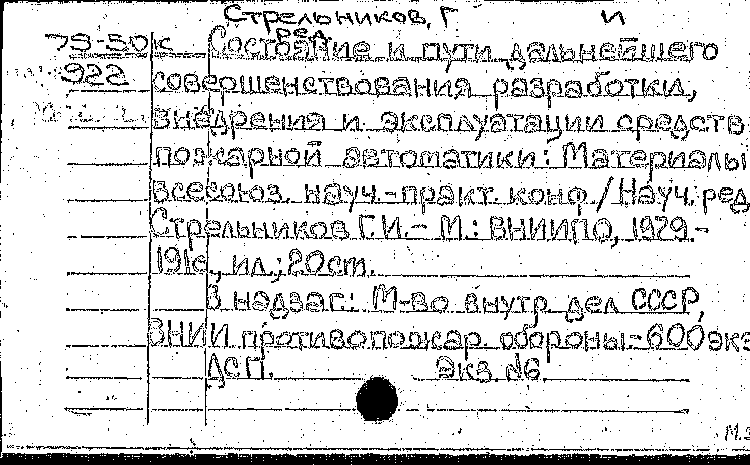 Стрельников, Г И
ред.
79-50к Состояние и пути дальнейшего
922 совершенствования разработки,
внедрения и эксплуатации средств
пожарной автоматики: Материалы
всесоюз. науч.-практ. конф./Науч. ред
Стрельников Г.И.- М.: ВНИИПО, 1979.-
191с., ил.; 20 cm.
В надзаг.: М-во внутр. дел СССР,
ВНИИ противопожар. обороны.- 600экз
ДСП. Экз. №6.